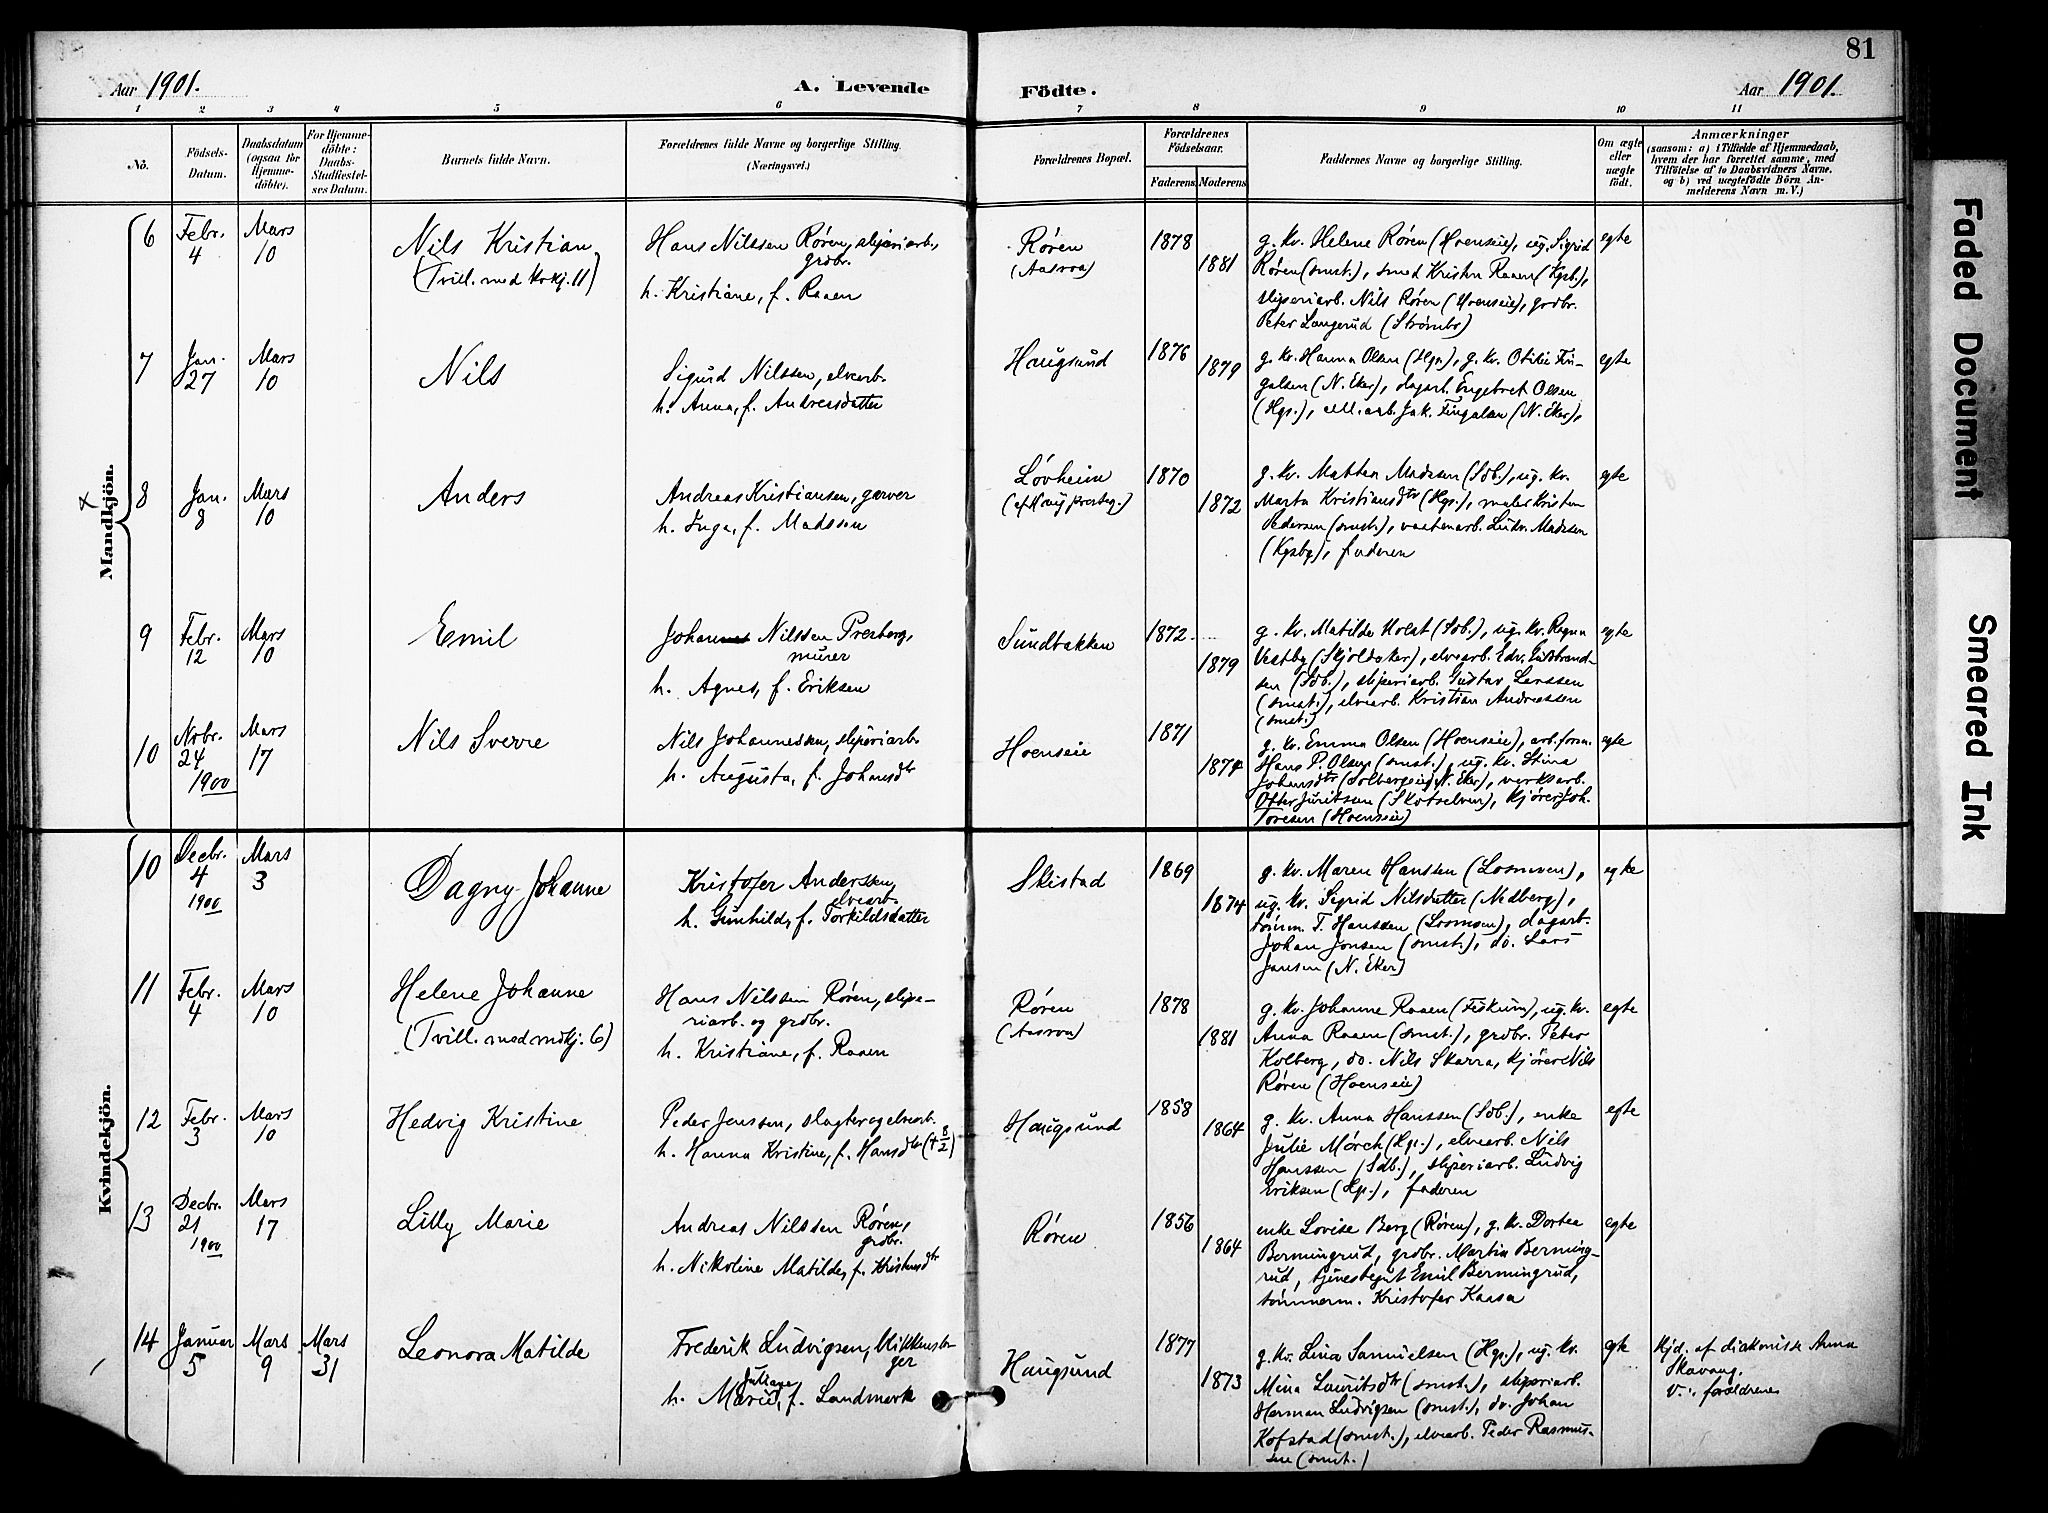 81
Aar 1901.
A. Levende Födte.
Aar 1901.
1 2 3 4 5 6 7 8 9 10 11
No.
Födsels-Datum.
Daabsdatum (ogsaa for Hjemmedöbte).
For Hjemmedöbte: Daabs-Stadfæstelses Datum.
Barnets fulde Navn.
Forældrenes fulde Navne og borgerlige Stilling.
(Næringsvei.)
Forældrenes Bopæl.
Forældrenes Födselsaar.
Faderens Moderens
Faddernes Navne og borgerlige Stilling.
Om ægte eller uægte födt.
Anmærkninger
(saasom: a) i Tilfælde af Hjemmedaab,
hvem der har forrettet samme, med
Tilföielse af to Daabsvidners Navne.
og b) ved uægtefödte Börn An-
melderens Navn m. V.)
Mandkjön.
6 Febr. 4 Mars 10 Nils Kristian (Tvill. med kvkj. 11)
Hans Nilssen Røren, sliperiarb., grdbr.
h. Kristiane, f. Raaen
Røren (Aasroa) 1878 1881
g. kv. Helene Røren (Hoenseie), ug. Sigrid
Røren (smst.), smed Kristen Raaen (Kgsb.),
sliperiarb. Nils Røren (Hoenseie), grdbr.
Peter Langerud (Strømbr)
egte
7 Jan. 27 Mars 10 Nils
Sigurd Nilssen, elvearb.
h. Anna, f. Andreasdatter
Haugsund 1876 1879
g. kv. Hanna Olsen (Hgs.), g. kv. Otilie Fin-
galsen (N. Eker), dagarb. Engebret Olsen
(Hgs.), cell.arb. Jak. Fingalsen (N. Eker),
egte
8 Jan. 8 Mars 10 Anders
Andreas Kristiansen, garver
h. Inga, f. Madssen
Løvheim 1870 1872
g. kv. Mathea Madssen (Sdb.), ug. kv.
Marta Kristiansdtr (Hgs.), maler Kristen
Pedersen (smst.), vaabenarb. Ludv. Madssen
(Kgsbg), faderen
egte
9 Febr. 12 Mars 10 Emil
Johannes Nilssen Presberg, murer
h. Agnes, f. Eriksen
Sundbakken 1872 1879
g. kv. Matilde Holst (Sdb.), ug. kv. Ragna
Vestby (Skjoldaker), elvearb. Edv. Gulbrand-
sen (Sdb.), sliperiarb. Gustav Larssen
(smst.), elvearb. Kristian Andreassen
(smst.)
egte
10 Novbr. 24 1900 Mars 17 Nils Sverre
Nils Johannessen, sliperiarb.
h. Augusta, f. Johansdtr
Hoenseie 1871 1874
g. kv. Emma Olsen (Hoenseie), arb.form.
Hans P. Olsen (smst.), ug. kv. Stina
Johansdtr (Solbergseie, N. Eker), verksarb.
Ofter Juritsen (Skotselven), kjører Joh.
Toresen (Hoenseie)
egte
Kvindekjön.
10 Decbr. 4 1900 Mars 3 Dagny Johanne
Kristofer Anderssen, elvearb.
h. Gunhild, f. Torkildsdatter
Skistad 1869 1874
g. kv. Maren Hanssen (Losmoen),
ug. kv. Sigrid Nilsdatter (Nedberg),
tömm. T. Hanssen (Losmoen), dagarb.
Johan Jonsen (smst.), do. Lars
Jansen (N. Eker)
egte
11 Febr. 4 Mars 10 Helene Johanne (Tvill. med mdkj. 6)
Hans Nilssen Røren, slipe-
riarb. og grdbr.
h. Kristiane, f. Raaen
Røren (Aasroa) 1878 1881
g. kv. Johanne Raaen (Fiskum), ug. kv.
Anna Raaen (smst.), grdbr. Peter
Kolberg, do. Nils Skarra, kjører Nils
Røren (Hoenseie)
egte
12 Febr. 3 Mars 10 Hedvig Kristine
Peder Jenssen, slagter og elvearb.
h. Hanna Kristine, f. Hansdtr († 8/2)
Haugsund 1858 1864
g. kv. Anna Hanssen (Sdb.), enke
Julie Mørch (Hgs.), elvearb. Nils
Hanssen (Sdb.), sliperiarb. Ludvig
Eriksen (Hgs.), faderen
egte
13 Decbr. 21 1900 Mars 17 Lilly Marie
Andreas Nilssen Røren, grdbr.
h. Nikoline Matilde, f. Kristensdtr
Røren 1856 1864
enke Lovise Berg (Røren), g. kv. Dortea
Bermingrud, grdbr. Martin Berming-
rud, tjenestegut Emil Bermingrud,
tömmerm. Kristofer Kaasa
egte
14 Januar 5 Mars 9 Mars 31 Leonora Matilde
Frederik Ludvigsen, blikkensla-
ger
h. Marie Juliane, f. Landmark
Haugsund 1877 1873
g. kv. Lina Samuelsen (Hgs.), ug. kv.
Mina Lauritsdtr (smst.), sliperiarb.
Herman Ludvigsen (smst.), do. Johan
Kofstad (smst.), elvearb. Peder Rasmus-
sen (smst.)
egte
Hjd. af diakonisse Anna
Skavang.
V.: forældrene
Faded Document
Smeared Ink